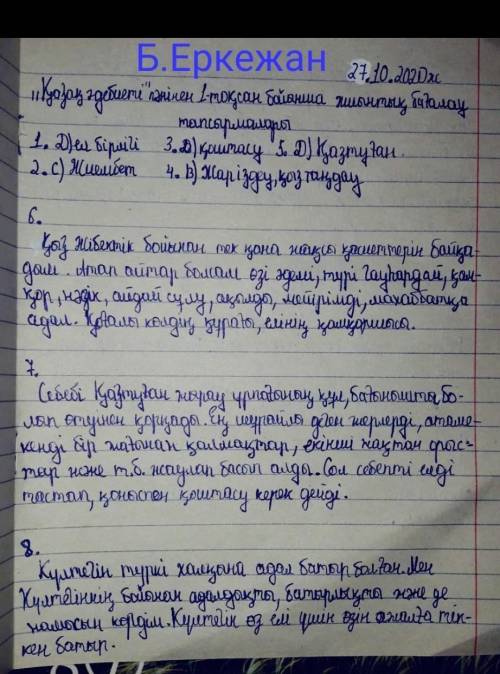 Б.Еркежан
27.10.2020ж
"Қазақ әдебиеті" пәнінен 1-тоқсан бойынша жиынтық бағалау
тапсырмалары
1. D) ел бірлігі 3. D) қоштасу 5. D) Қазтуған
2. C) Жиембет 4. B) Жар іздеу, қыз таңдау
6.
Қыз Жібектік бойынан тек қана жақсы қасиеттерін байқа-
дым. Атап айтар болсам өзі әдемі, түрі гауһардай, қам-
қор, нәзік, айдай сұлу, ақылды, мейірімді, махаббатқа
адал. Қоғалы көлдің құрағы, елінің қамқоршысы.
7.
Себебі Қазтуған жырау ұрпағының құл, бағынышты бо-
лып өтуінен қорқады. Ең шұрайлы деген жерлерді, атаме-
кенді бір жағынан қалмақтар, екінші жақтан орыс-
тар және т.б. жаулап басып алды. Сол себепті елді
тастап, қоныспен қоштасу керек дейді.
8.
Күлтегін түркі халқына адал батыр болған. Мен
Күлтегіннің бойынан адалдықты, батырлықты және де
намысын көрдім. Күлтегін өз елі үшін өзін ажалға тік-
кен батыр.